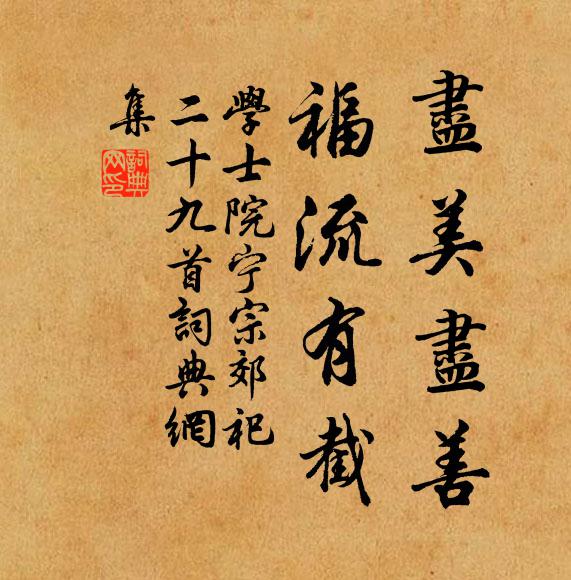 盡美盡善
福流有截
學士院宁宗郊祀
二十九首詞典網
集
詞典网印